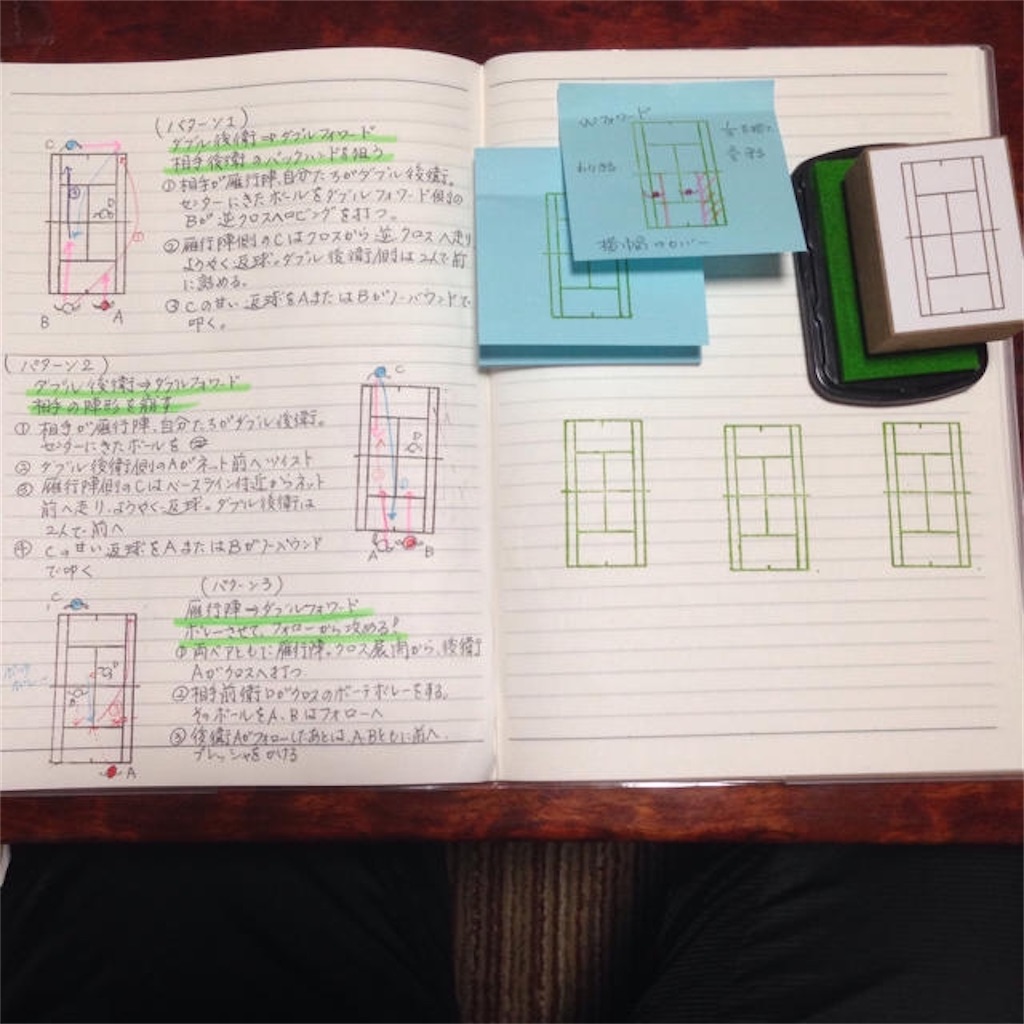 (パターン1)
ダブル後衛⇒ダブルフォワード
相手後衛のバックハンドを狙う
① 相手が雁行陣、自分たちがダブル後衛。
センターにきたボールをダブルフォワード側の
Bが逆クロスへロビングを打つ。
② 雁行陣側のCはクロスから逆クロスへ走り
ようやく返球。ダブル後衛側は2人で前
に詰める。
③ Cの甘い返球をAまたはBがノーバウンドで
叩く。
C
D
B
A
(パターン2)
ダブル後衛⇒ダブルフォワード
相手の陣形を崩す
① 相手が雁行陣、自分たちがダブル後衛。
センターにきたボールを
② ダブル後衛側のAがネット前へツイスト
③ 雁行陣側のCはベースライン付近からネット
前へ走り、ようやく返球。ダブル後衛は
2人で前へ
④ Cの甘い返球をAまたはBがノーバウンド
で叩く
C
D
A
B
(パターン3)
雁行陣⇒ダブルフォワード
ボレーさせて、フォローから攻める!
① 両ペアともに雁行陣。クロス展開から、後衛
Aがクロスへ打つ
② 相手前衛Dがクロスのポーチボレーをする。
そのボールをA、Bはフォローへ
③ 後衛Aがフォローしたあとは、A、Bともに前へ。
プレッシャをかける
C
D
B
A
Wフォワード